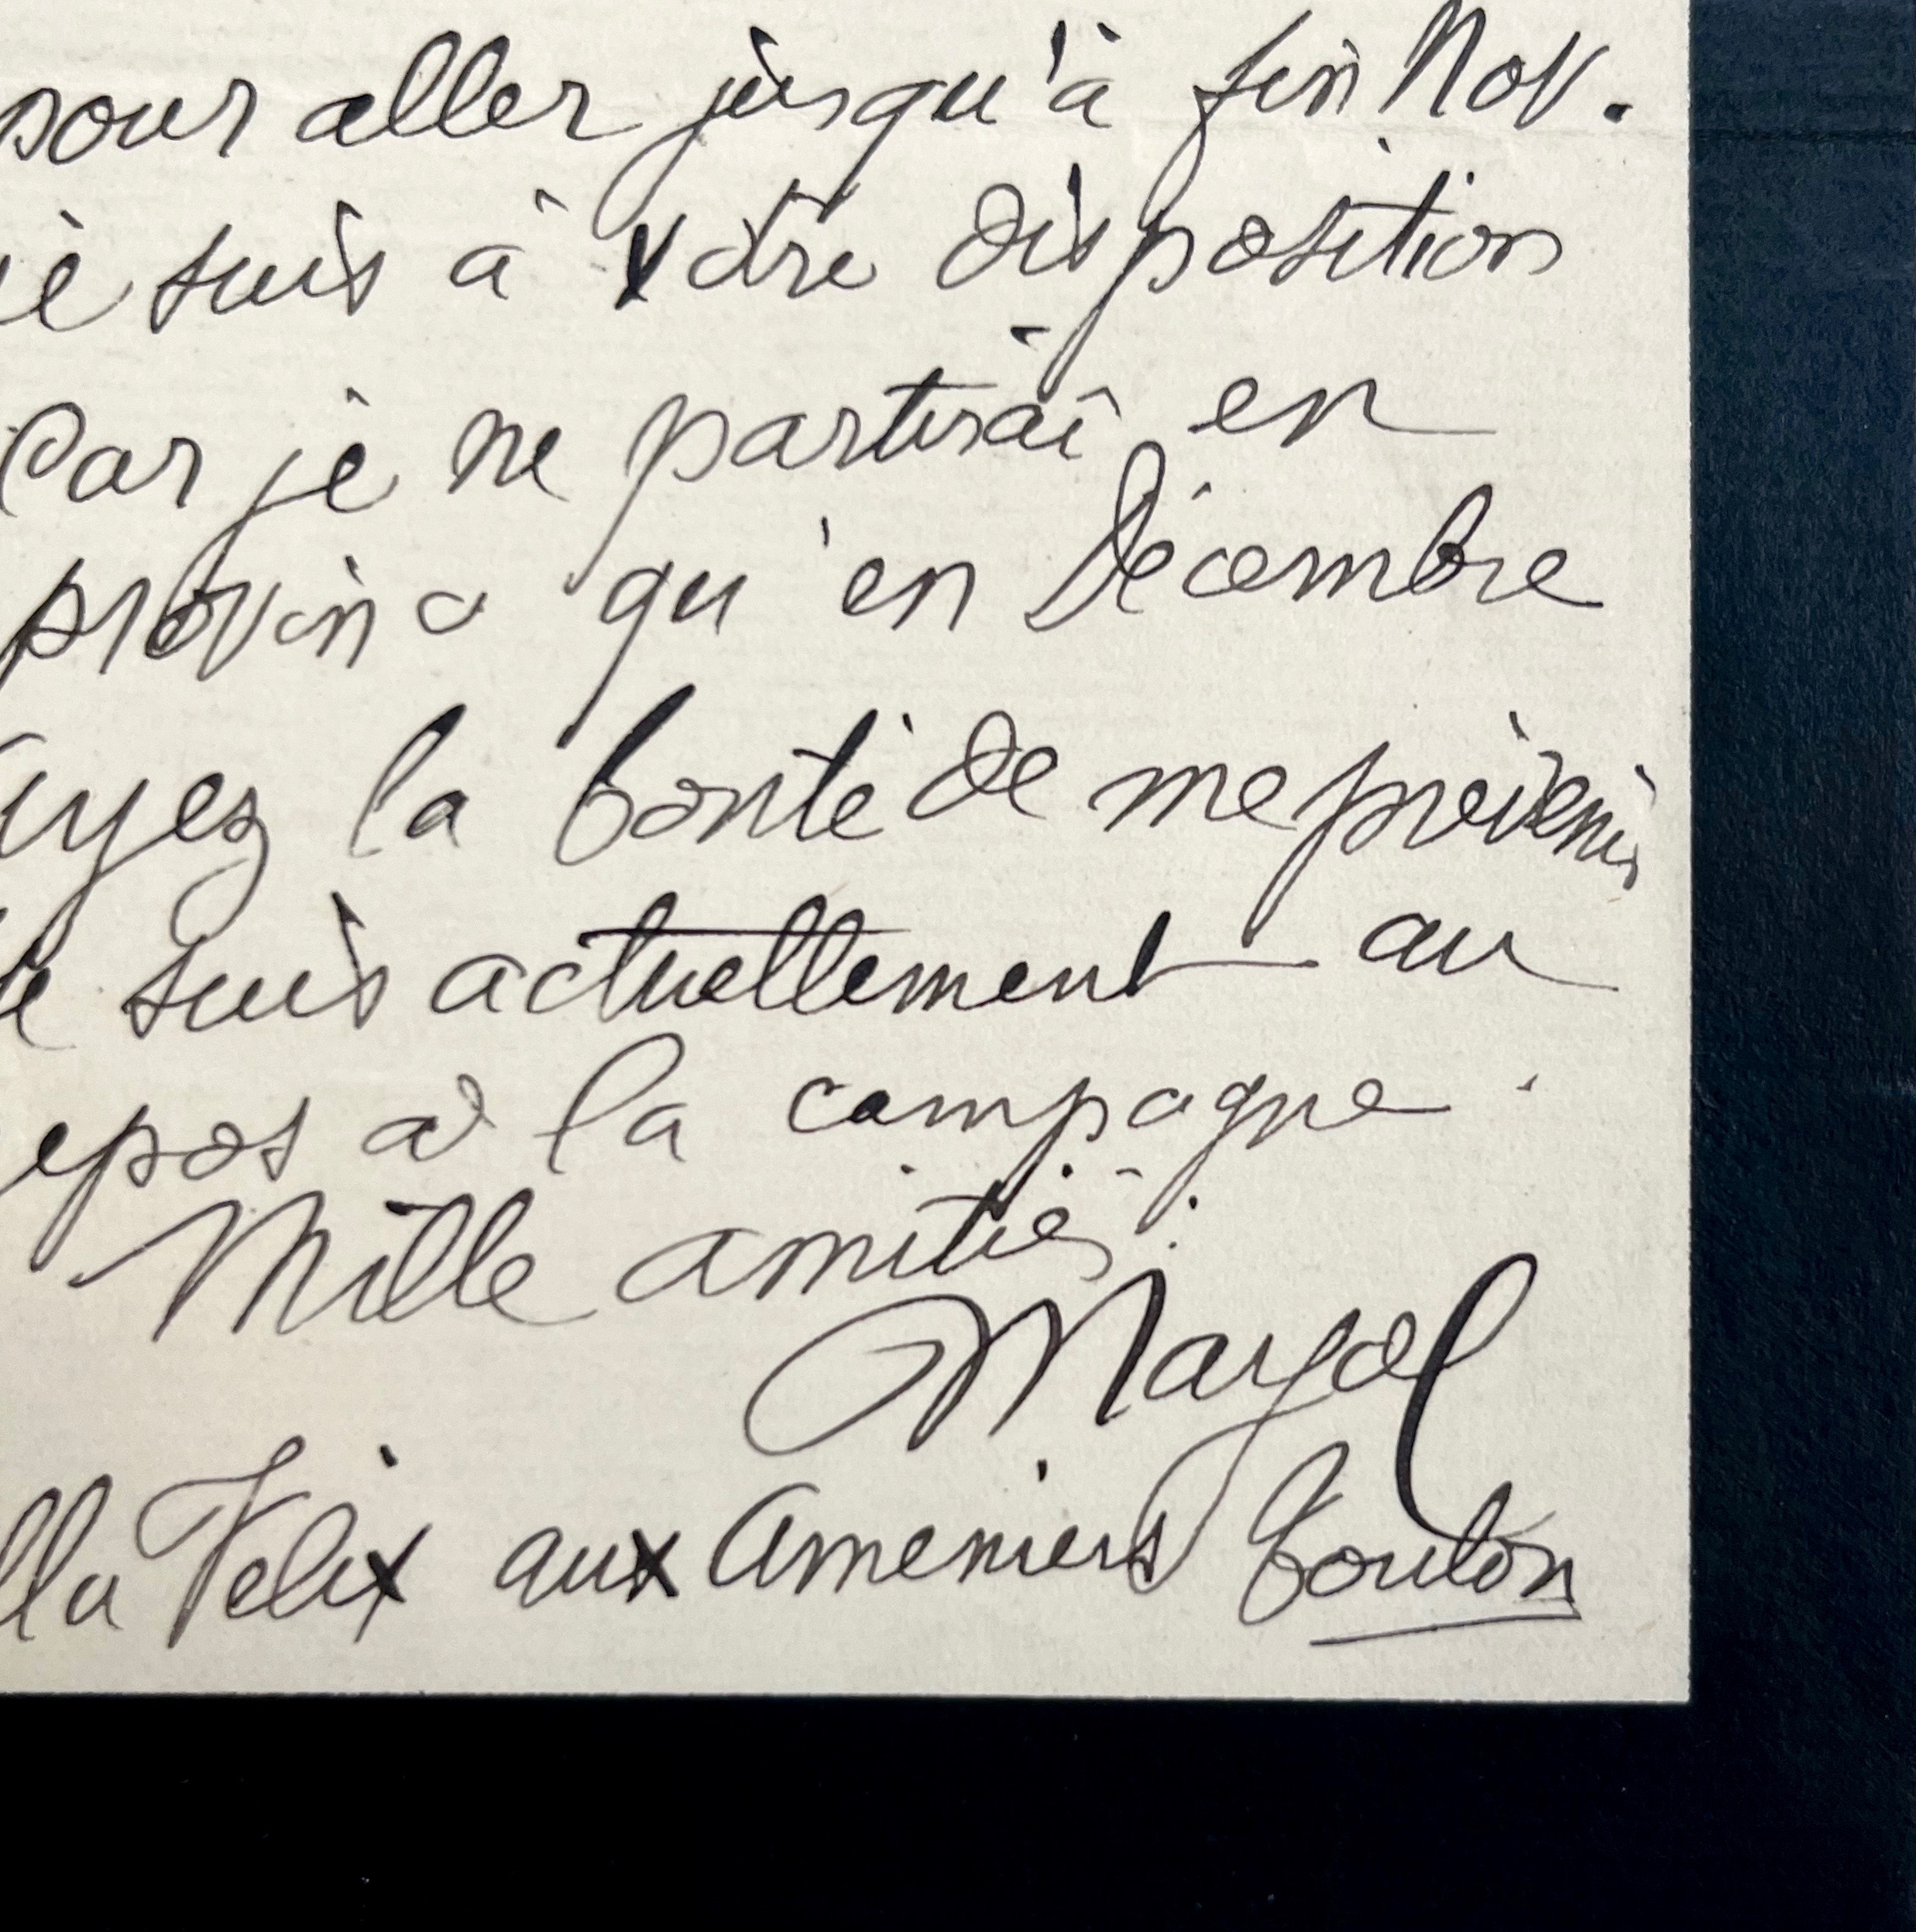 pour aller jusqu'à fin Nov.
je suis à votre disposition
Car je ne partirai en
province qu'en Décembre
Ayez la bonté de me prévenir
Je suis actuellement au
repos à la campagne.
Mille amitiés.
Mayol
lla Felix aux Ameniers Toulon